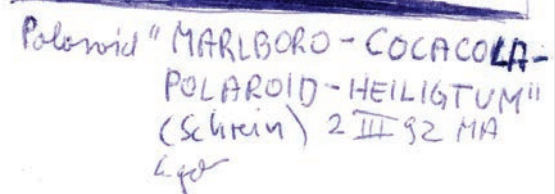 Polaroid "MARLBORO-COCACOLA-
POLAROID-HEILIGTUM"
(Schrein) 2 III 92 MA